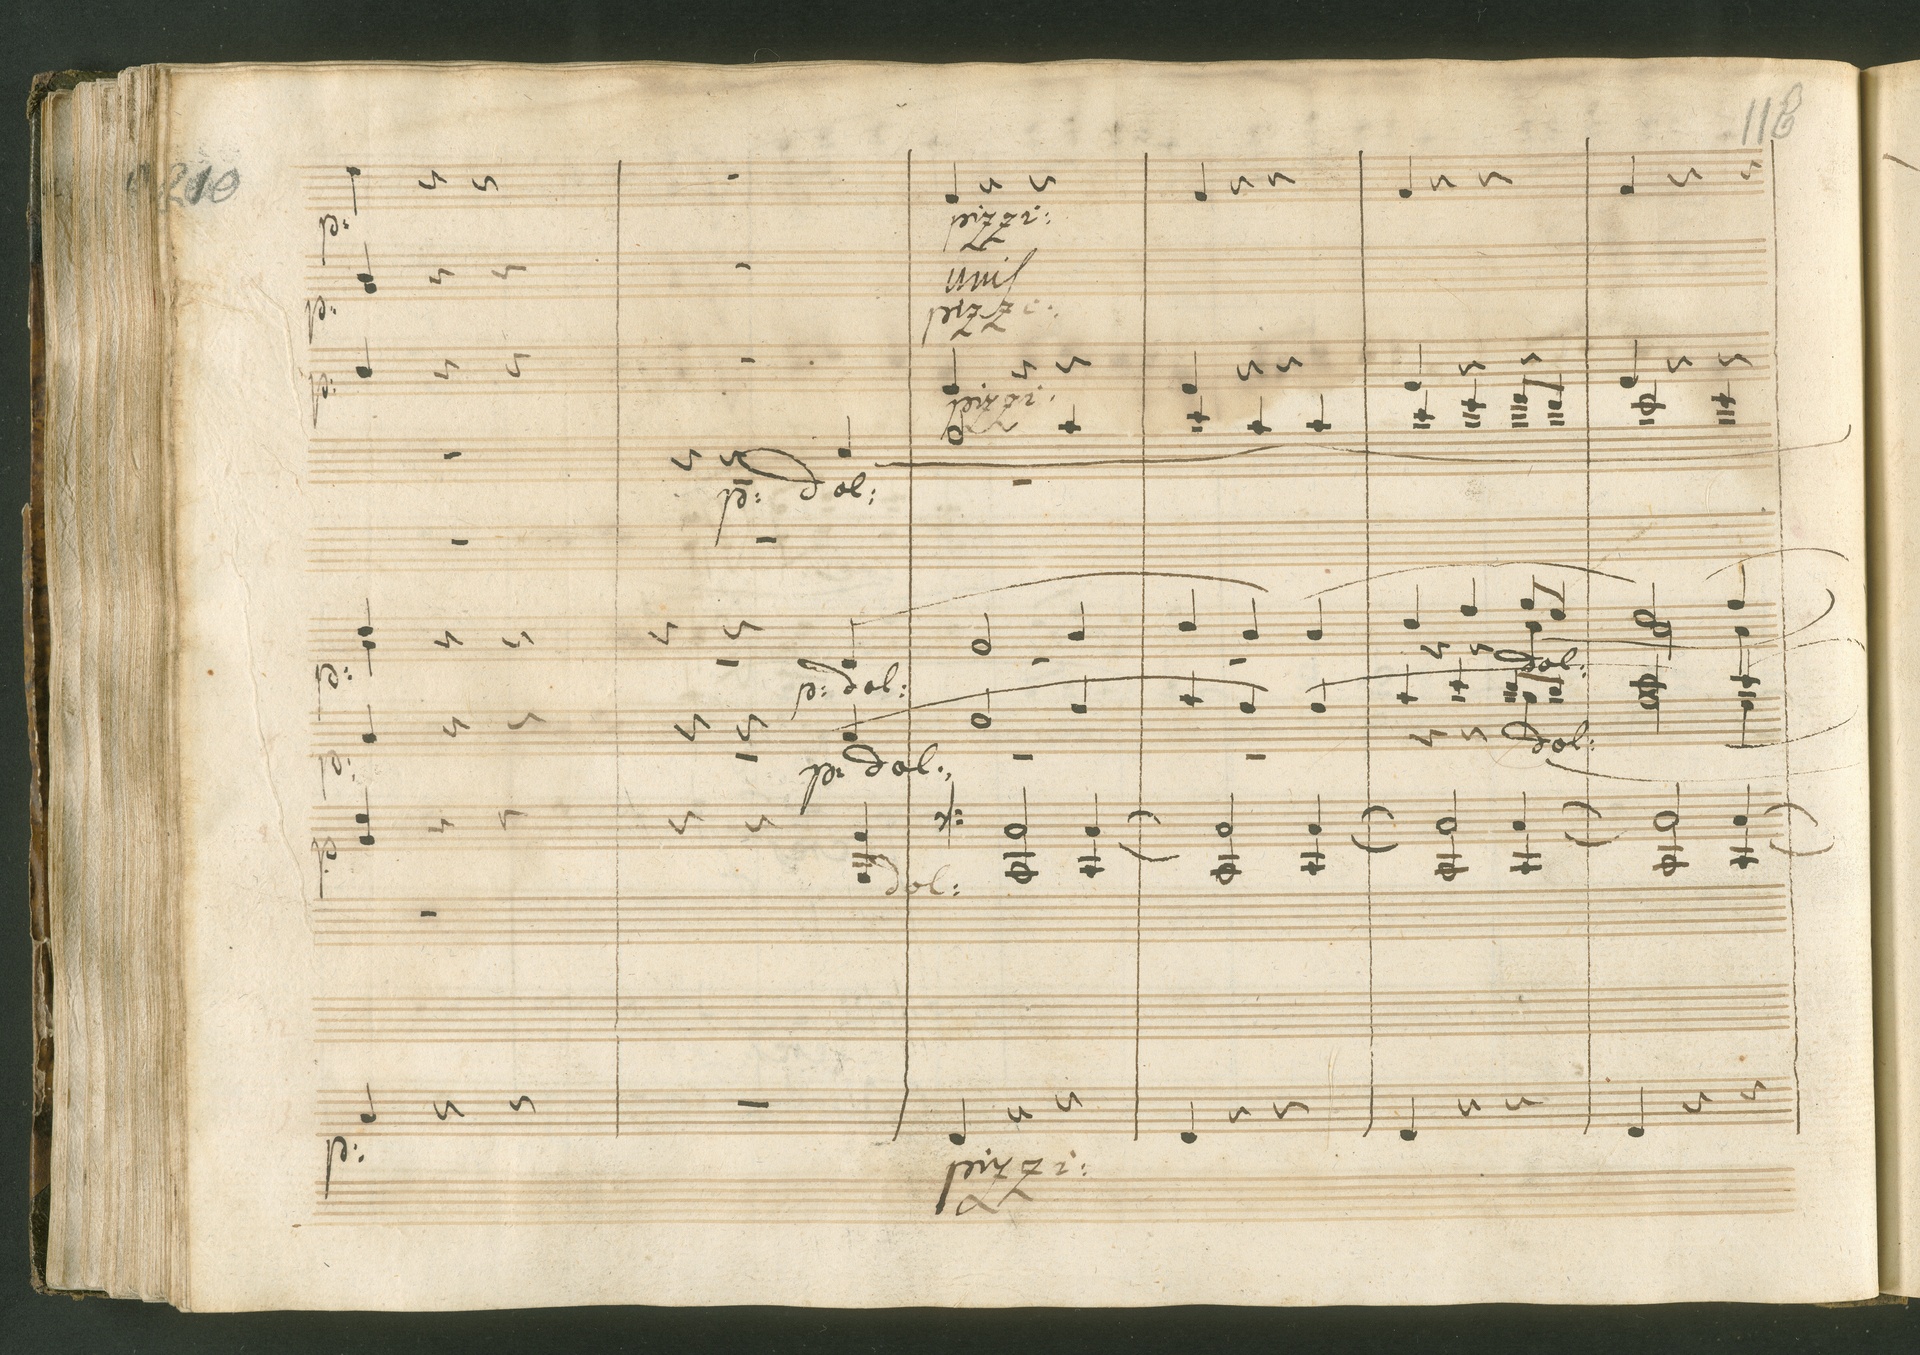 118
210
p:
pizzi:
p:
unis
pizz:
p:
pizzi:
p: dol:
p:
p: dol:
dol:
p:
p: dol:
dol:
p:
dol:
p:
pizzi: